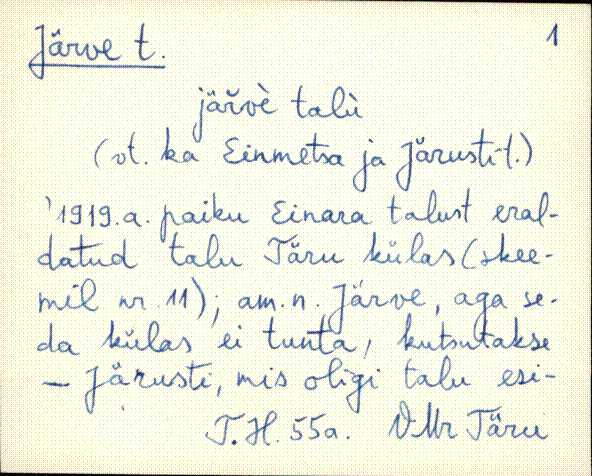 Järve t. 1
järvè talù
(vt. ka Einmetsa ja Järusti t.)
'1919.a. paiku Einara talust eral-
datud talu Täru külas (skee-
mil nr. 11); am.n. Järve, aga se-
da külas ei tunta, kutsutakse
— Järusti, mis oligi talu esi-
T.H. 55a. VMr Täru